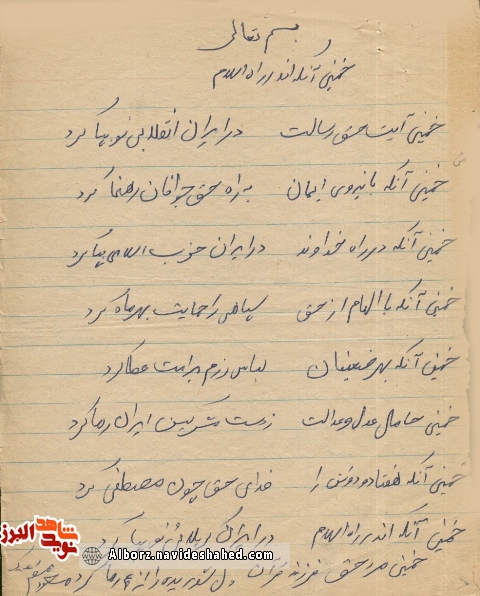 بسم تعالی
خمینی آنکه اندر راه اسلام
خمینی آیت حق رسالت در ایران انقلابی نو بپا کرد
خمینی آنکه با نیروی ایمان به راه حق جوانان رهنما کرد
خمینی آنکه در راه خداوند در ایران حزب اللهی بپا کرد
خمینی آنکه با الهام از حق سپاهی را حمایت بهر ما کرد
خمینی آنکه بهر ضعیفان لباس رزم عطا کرد
خمینی حامل عدل و عدالت ز دست مشرکین ایران رها کرد
خمینی آنکه هفتاد و دو تن را فدای حق چون مصطفی کرد
خمینی آنکه اندر راه اسلام در ایران کربلای نو بپا کرد
خمینی مرد حق فرزند قرآن دل شوریده را از غم رها کرد
شاهد
نوید
البرز
Alborz.navideshahed.com